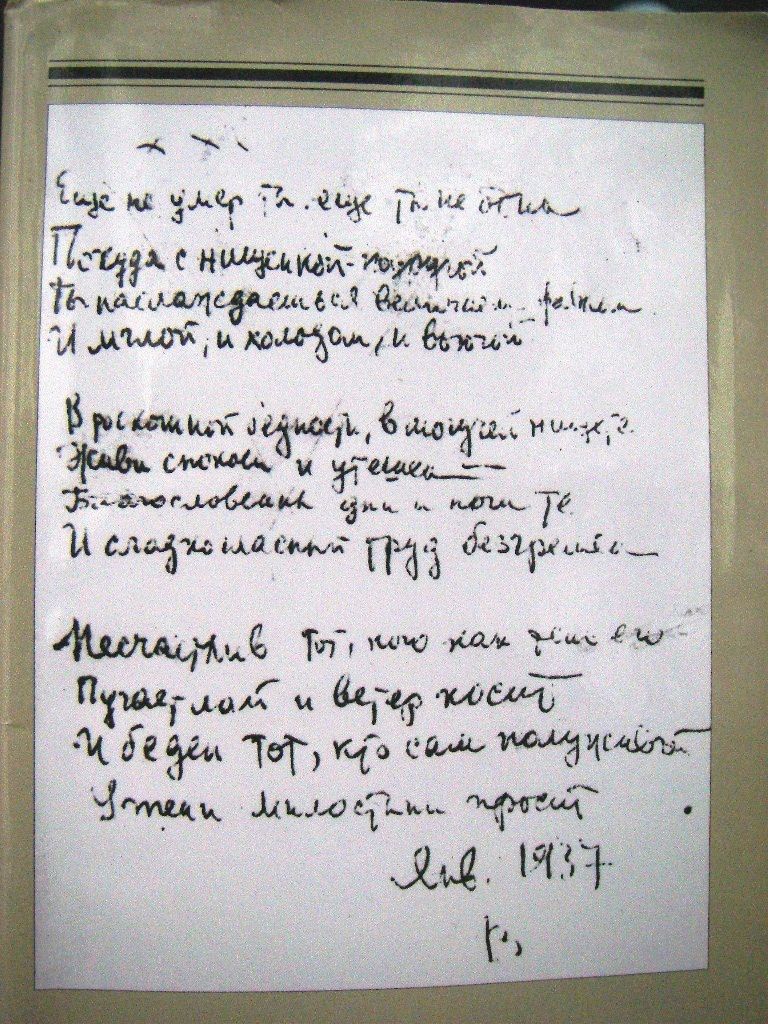 х х х
Еще не умер ты. еще ты не один
Покуда с нищенкой-подругой
Ты наслаждаешься величием равнин
И мглой, и холодом, и вьюгой
В роскошной бедности, в могучей нищете
Живи спокоен и утешен —
Благословенны дни и ночи те
И сладкогласный труд безгрешен
Несчастлив тот, кого как тень его
Пугает лай и ветер косит
И беден тот, кто сам полуживой
У тени милостыни просит
Янв. 1937